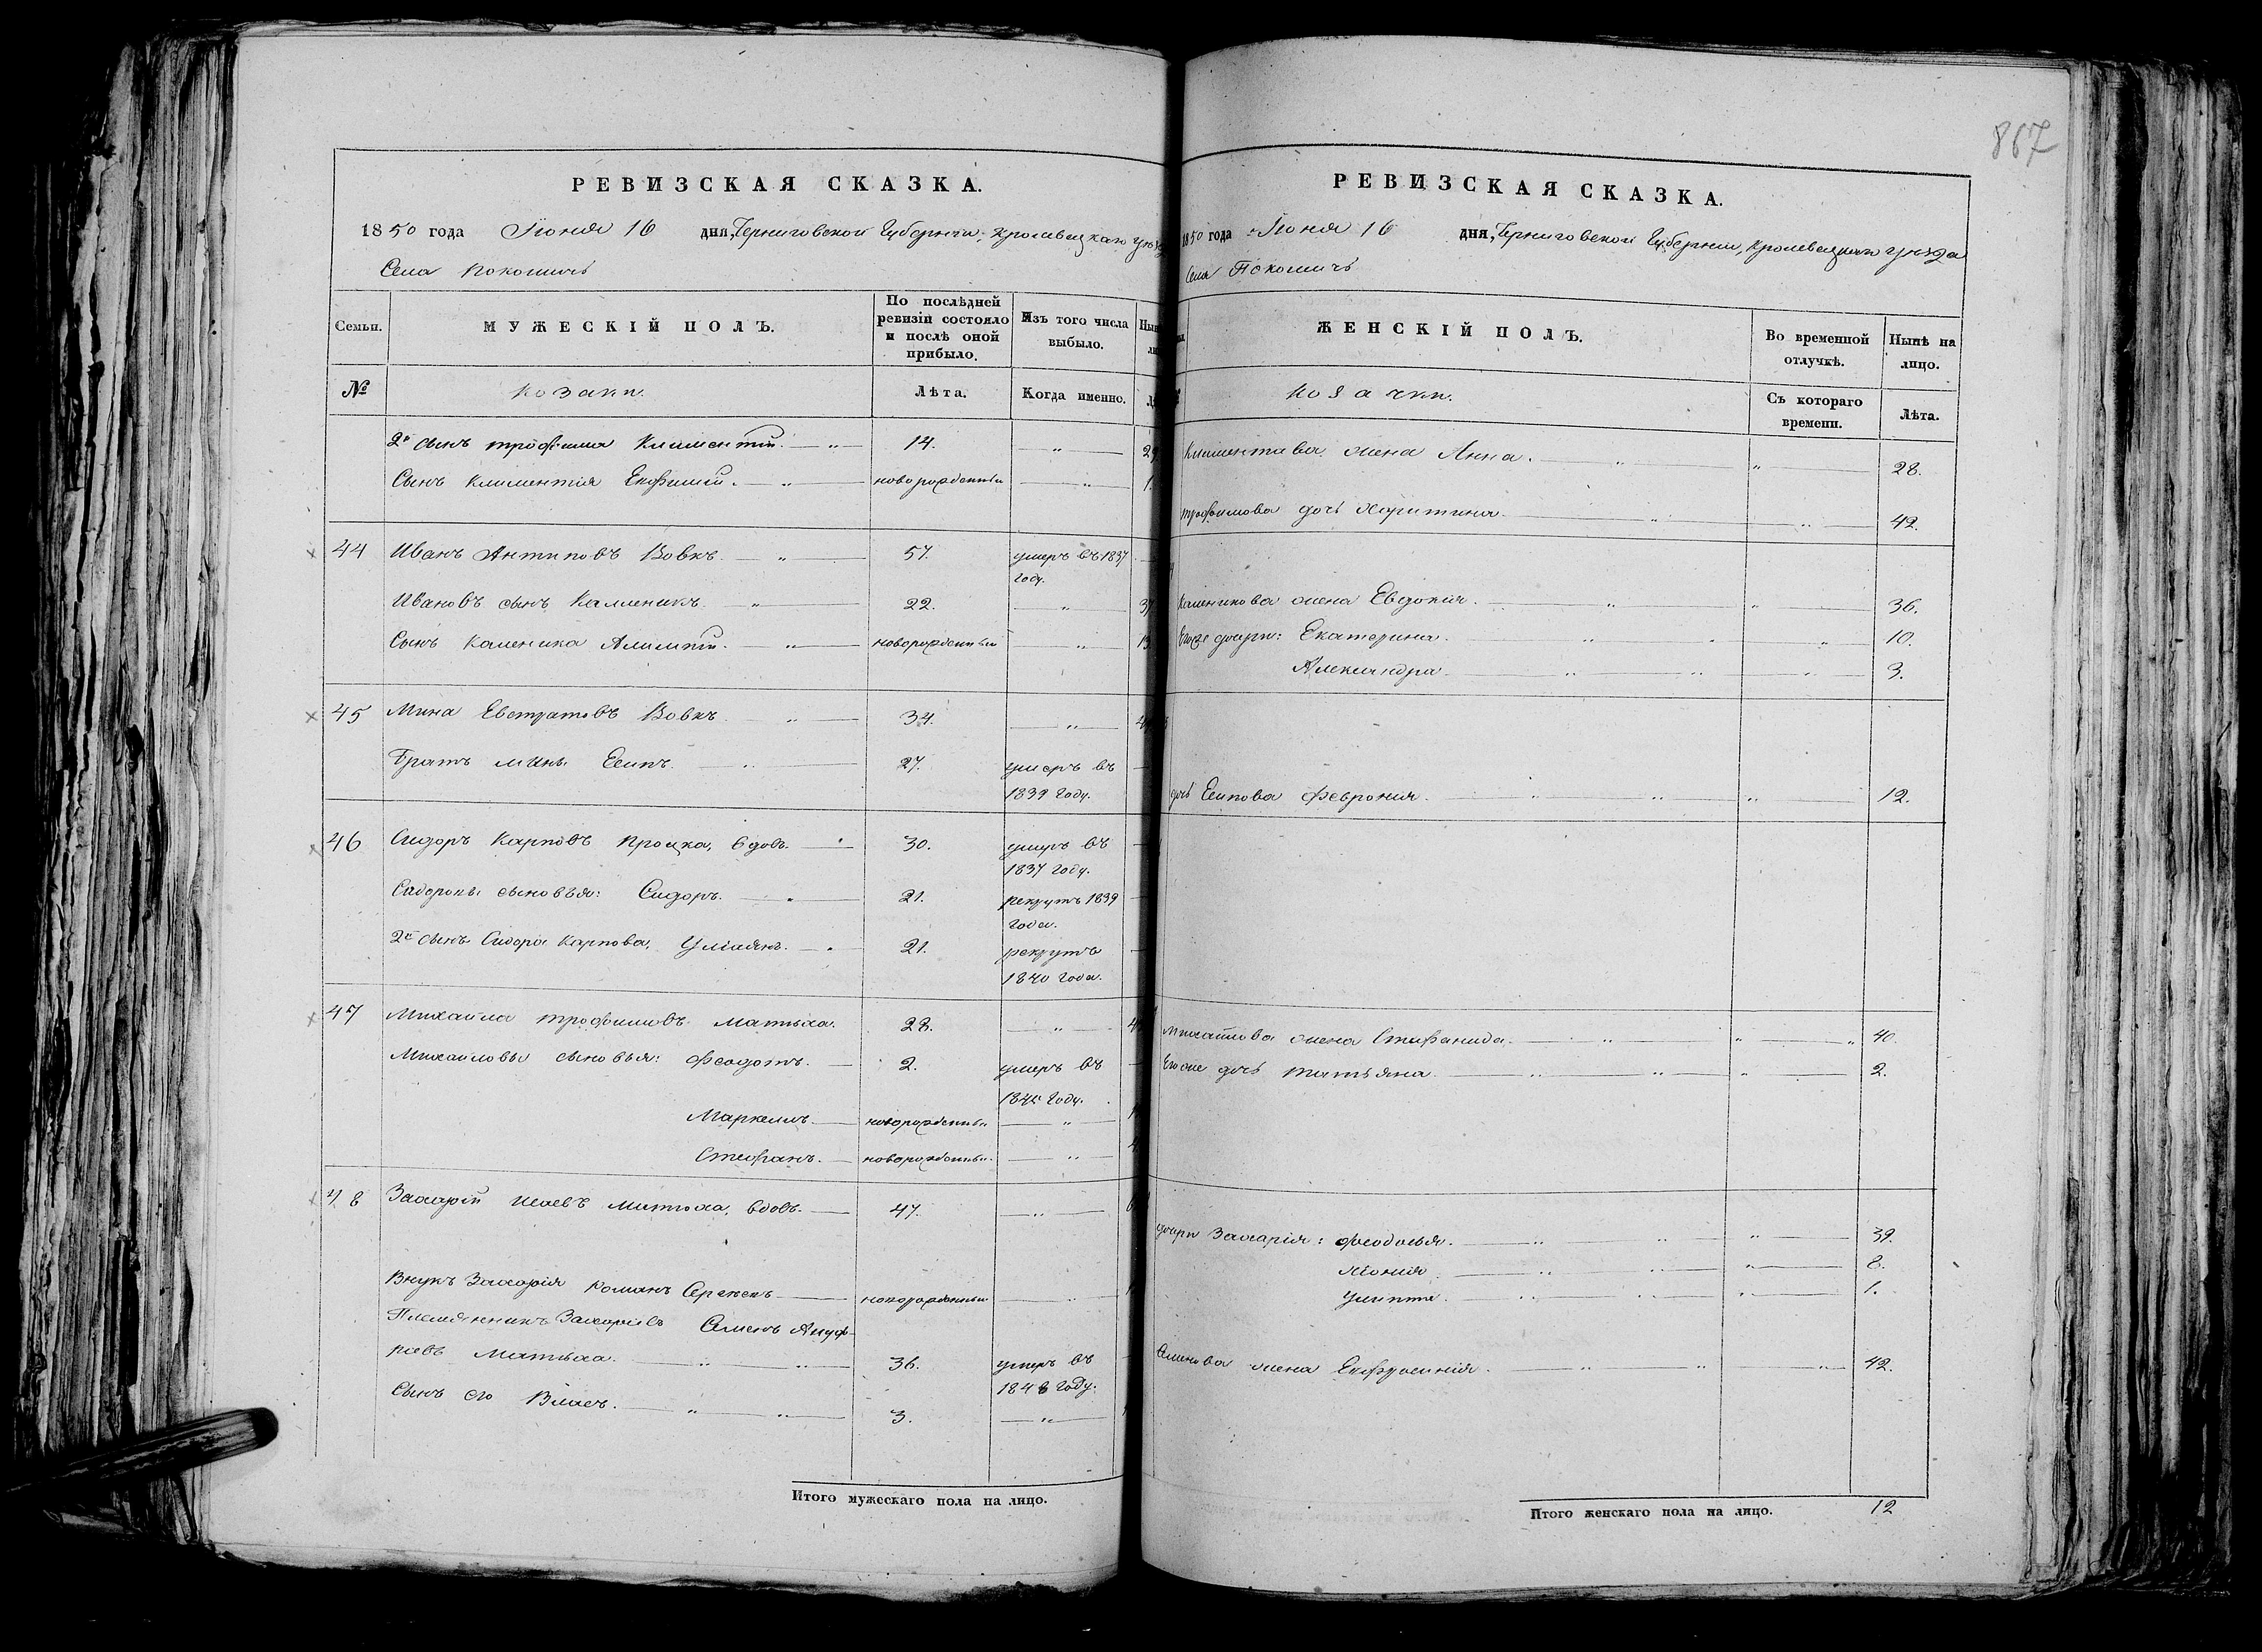 867
РЕВИЗСКАЯ СКАЗКА.
1850 года Июня 16 дня, Черниговской Губернiи, Кролевецкаго уѣз
Села Покошичь
Семьи. МУЖЕСКIЙ ПОЛЪ. По послѣдней ревизiи состояло и послѣ оной прибыло. Изъ того числа выбыло.
№ Козаки. Лѣта. Когда именно.
2й сынъ Трофима Климентiй. — „ — 14. — „ — 29
Сынъ Климентiя Евфимiй. — „ — новорожденный — „ — 1.
44 Иванъ Антиповъ Вовкъ. — „ — 57. умеръ въ 1837
году.
Ивановъ сынъ Каленикъ. — „ — 22. — „ — 37
Сынъ Каленика Алимпiй. — „ — новорожденный — „ — 13.
45 Мина Евстратовъ Вовкъ. — „ — 34. — „ —
Братъ Мины Есипъ. — „ — 27. умеръ въ
1839 году.
46 Сидоръ Карповъ Процка, вдовъ. — „ — 30. умеръ въ
1837 году.
Сидоровы сыновья: Сидоръ. — „ — 21. рекрутъ 1839
года.
2й сынъ Сидора Карпова, Ульянъ. — „ 21. рекрутъ
1840 года.
47 Михайла Трофимовъ Матюха. 28. — „ — 4
Михайловы сыновья: Феодотъ. — 2. умеръ въ
году.
Маркелъ. — новорожденный — „ —
Стефанъ. — новорожденный. — „ — 4
48 Захарiй Исаевъ Матюха, вдовъ. — 47. — „ —
Внукъ Захарiя Романъ Сергѣевъ — новорожденный — „ —
Племянникъ Захарiевъ Семенъ Ануф-
рiевъ Матюха. — „ — „ — 36. умеръ въ
1848 году.
Сынъ его Власъ. — „ — „ — 3. — „ —
Итого мужескаго пола на лицо.
РЕВИЗСКАЯ СКАЗКА.
1850 года Июня 16 дня, Черниговской Губернiи, Кролевецкаго уѣзда
Села Покошичь
ЖЕНСКIЙ ПОЛЪ. Во временной отлучкѣ. Нынѣ на лицо.
Козачки. Съ котораго времени. Лѣта.
Климентiева жена Анна. — „ — „ — 28.
Трофимова дочь Харитина. — „ — „ — 42.
Каленикова жена Евдокiя. — „ — „ — 36.
Егоже дочери: Екатерина. — „ — „ — 10.
Александра. — „ — „ — „ — 3.
дочь Есипова Феврония. — „ — „ — „ — 12.
Михайлова жена Стефанида. — „ — „ — „ 40.
Егоже дочь Татьяна. — „ — „ — „ — 2.
дочери Захарiя: Феодосья. — „ — „ — „ — 39.
— „ — „ — „ — 8.
— „ — „ — „ — 1.
Семенова жена Евфросинiя. — „ — „ — „ — 42.
Итого женскаго пола на лицо. 12